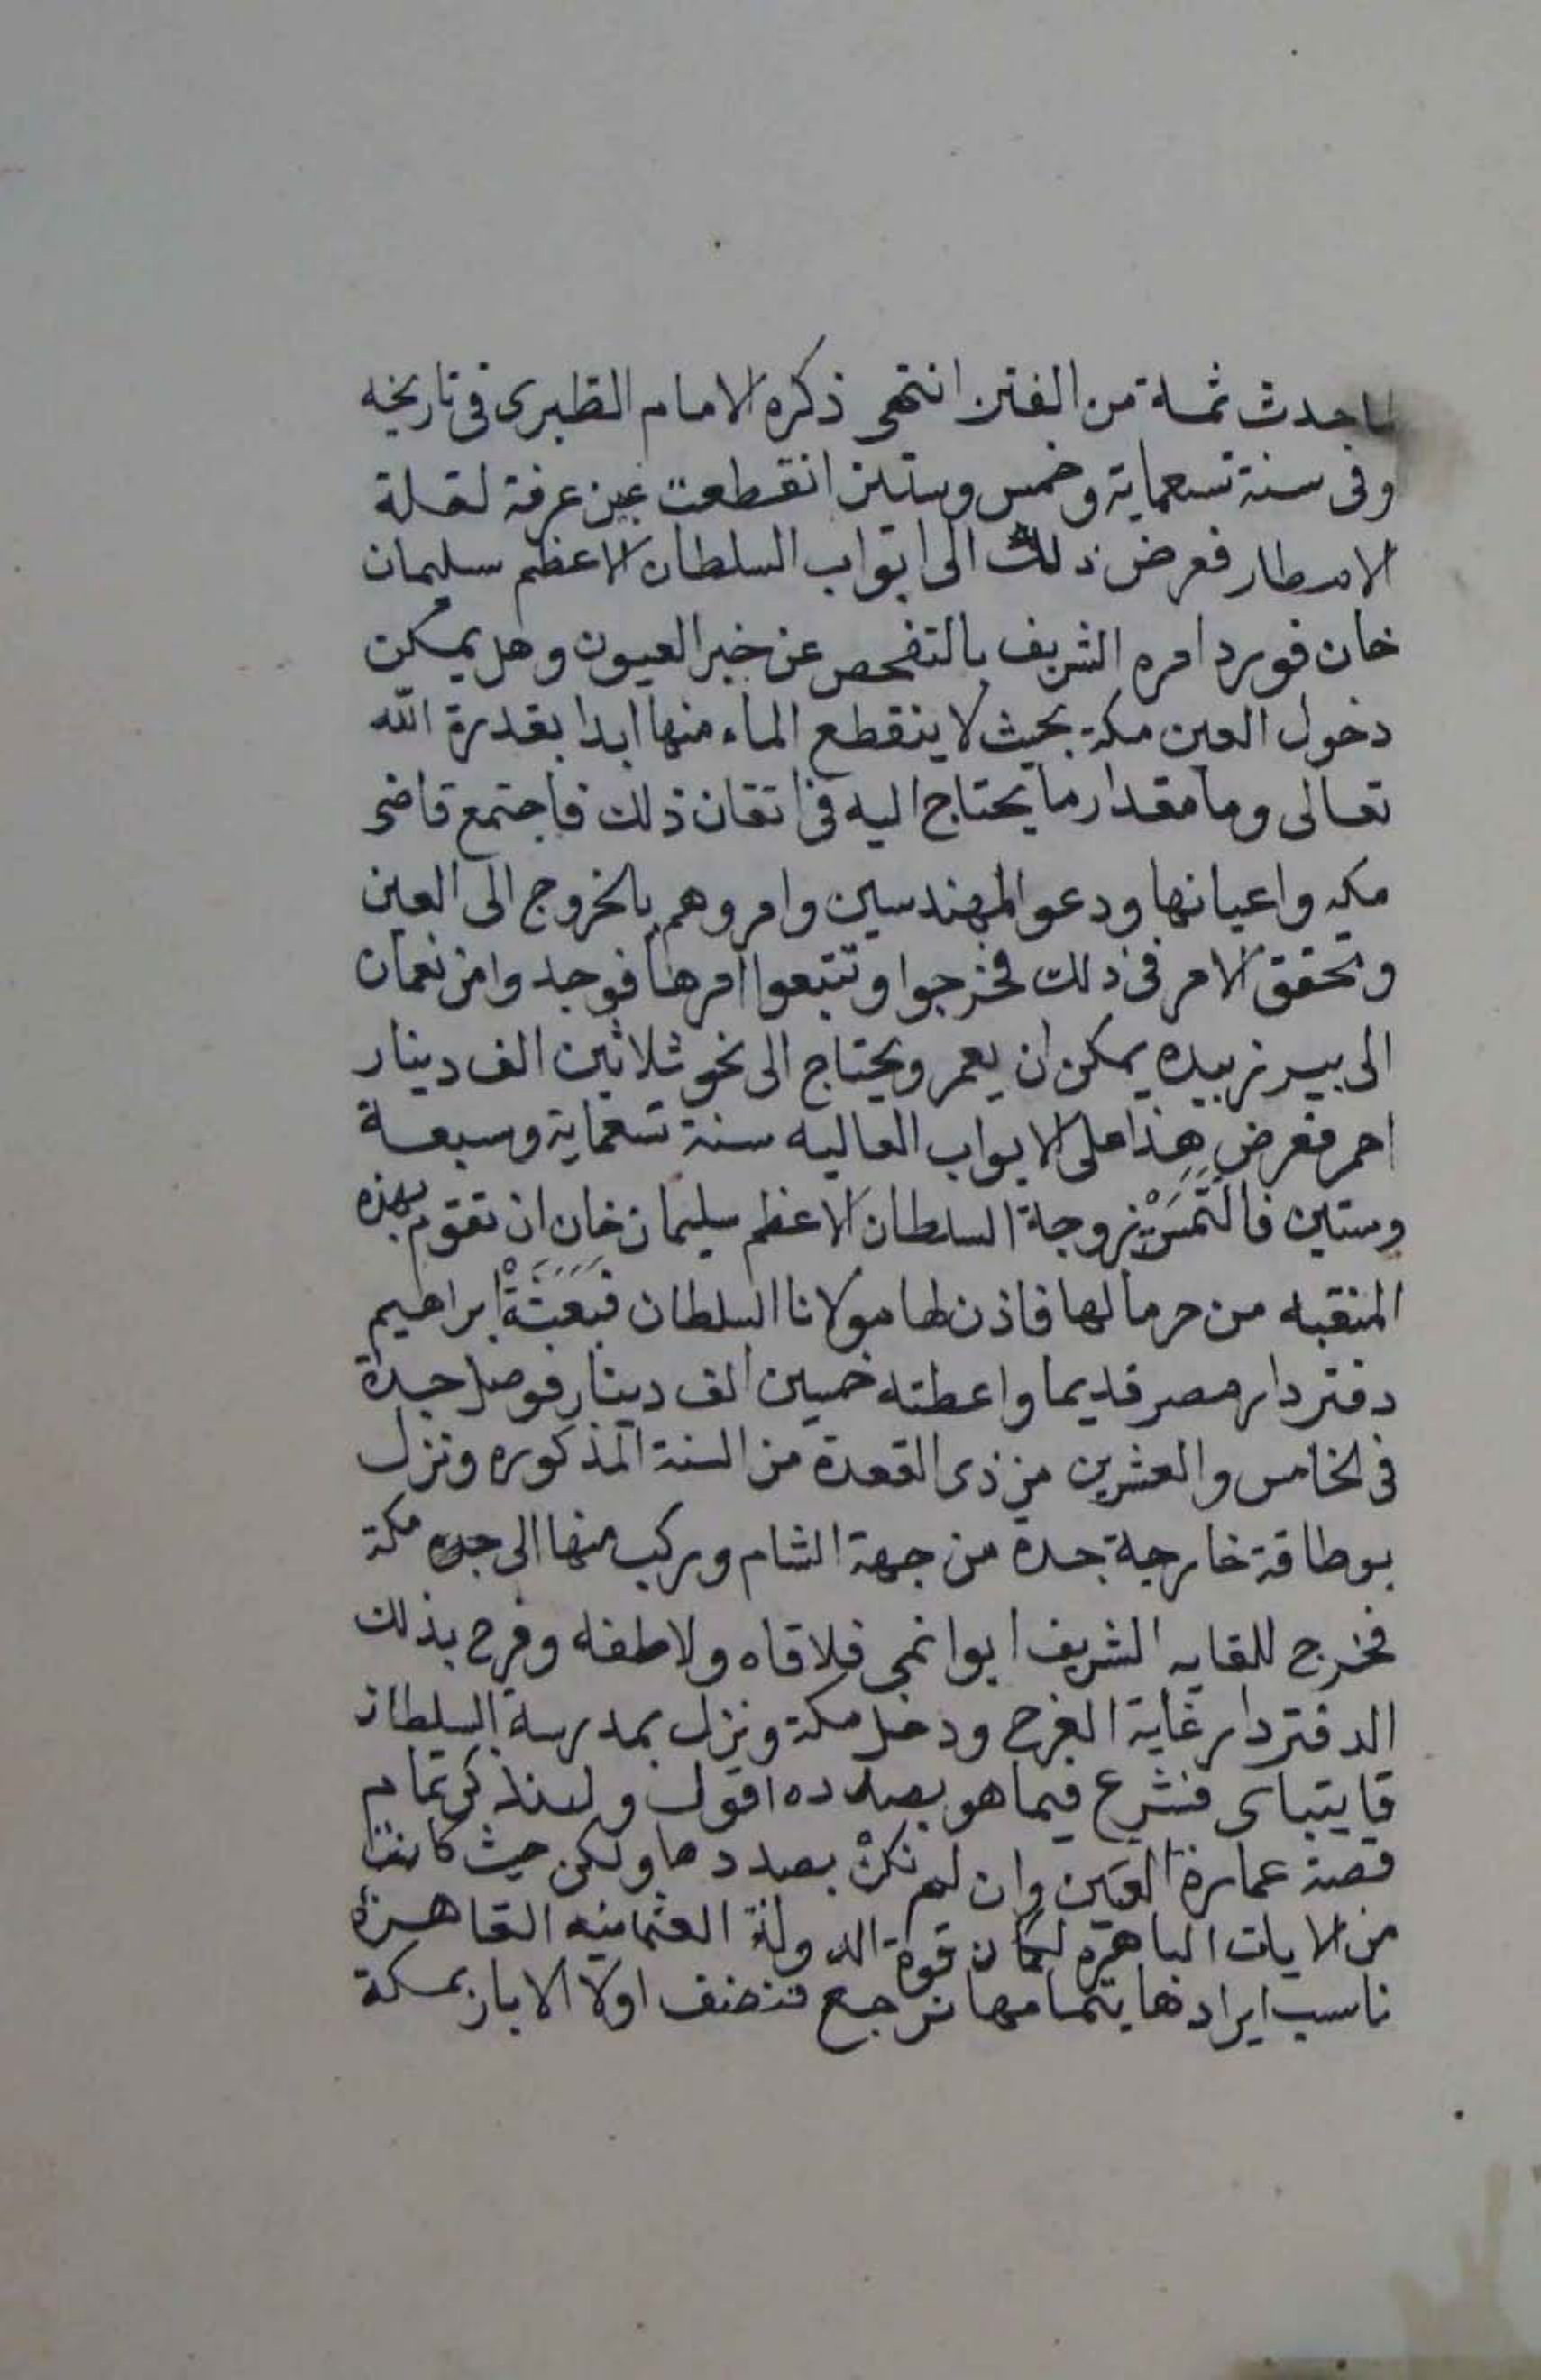 لما حدث ثمة من الفتن انتهى ذكره الامام الطبرى فى تاريخه
وفى سنة تسعماية وخمس وستين انقطعت عين عرفة لقلة
الامطار فعرض ذلك الى ابواب السلطان الاعظم سليمان
خان فورد امره الشريف بالتفحص عن خبر العيون وهل يمكن
دخول العين مكة بحيث لا ينقطع الماء منها ابدا بقدرة الله
تعالى وما مقدار ما يحتاج اليه فى اتقان ذلك فاجتمع قاضى
مكه واعيانها ودعو المهندسين وامروهم بالخروج الى العين
وتحقق الامر فى ذلك فخرجوا وتتبعوا امرها فوجدوا من نعمان
الى بير زبيده يمكن ان يعمر ويحتاج الى نحو ثلاثين الف دينار
احمر فعرض هذا على الابواب العاليه سنة تسعماية وسبعة
وستين فالتَمَسَتْ زوجة السلطان الاعظم سليمان خان ان تقوم بهذه
المنقبه من حر مالها فاذن لها مولانا السلطان فبَعَثَتْ ابراهيم
دفتردار مصر قديما واعطته خمسين الف دينار فوصل جدة
فى الخامس والعشرين من ذى القعدة من السنة المذكوره ونزل
بوطاقة خارجة جدة من جهة الشام وركب منها الى جده مكة
فخرج للقايه الشريف ابوا نمى فلاقاه ولاطفه وفرح بذلك
الدفتردار غاية الفرح ودخل مكة ونزل بمدرسة السلطان
قايتباى فشرع فيما هو بصدده اقول ولنذكر تمام
قصة عمارة العين وان لم نكنْ بصددها ولكن حيث كانت
من الايات الباهره لمكان قوة الدولة العثمانيه القاهرة
ناسب ايرادها بتمامها نرجع فنضف اولا الابار بمكة